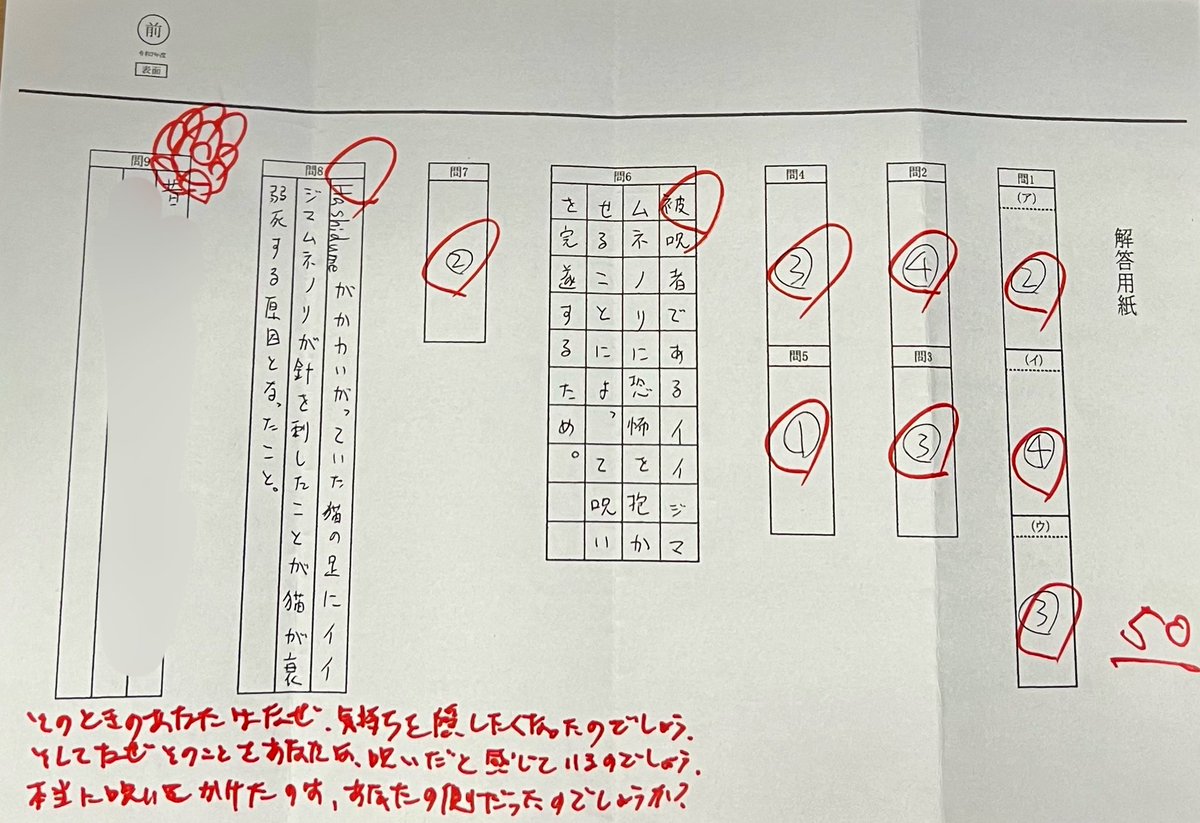 前
表面
解答用紙
問1
(ア)
②
(イ)
④
(ウ)
③
50
問2
④
問3
③
問4
③
問5
①
問6
被呪者であるイイジマ
ムネノリに恐怖を抱か
せることによって呪い
を完遂するため。
問7
②
問8
Hashidumeがかわいがっていた猫の足にイイ
ジマムネノリが針を刺したことが猫が衰
弱死する原因となったこと。
問9
昔
そのときのあなたはなぜ、気持ちを隠したくなったのでしょう。
そしてなぜそのことをあなたは、呪いだと感じているのでしょう。
本当に呪いをかけたのは、あなたの側だったのでしょうか?